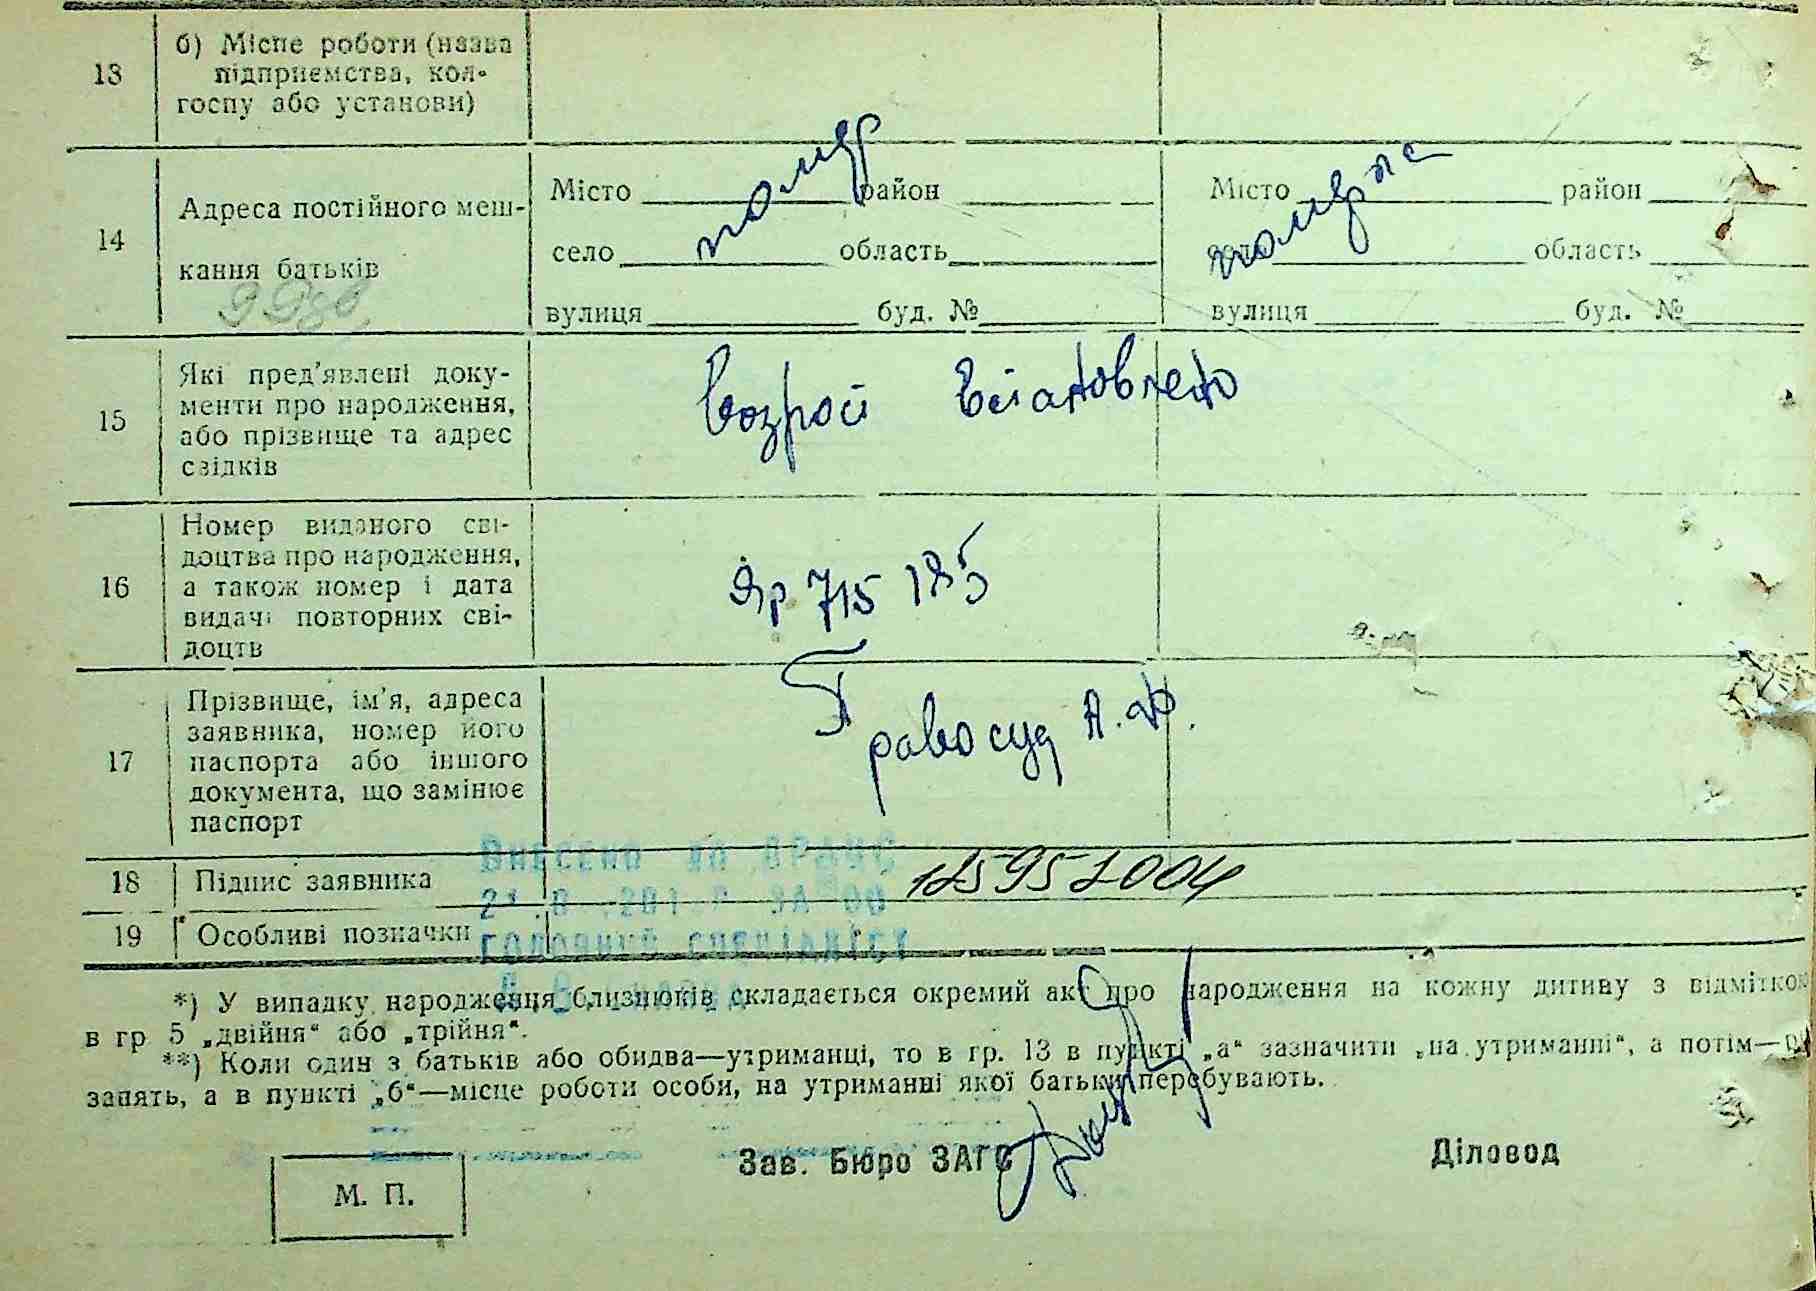 13
б) Місце роботи (назва
підприємства, кол-
госпу або установи)
14
Адреса постійного меш-
кання батьків
Місто помер район
село область
вулиця буд. №
Місто померла район
село область
вулиця буд. №
15
Які пред'явлені доку-
менти про народження,
або прізвище та адрес
свідків
Возрост встановлено
16
Номер виданого сві-
доцтва про народження,
а також номер і дата
видачі повторних сві-
доцтв
715 185
17
Прізвище, ім'я, адреса
заявника, номер його
паспорта або іншого
документа, що замінює
паспорт
Правосуд А. Ф.
18 Підпис заявника
19 Особливі позначки
ВНЕСЕНО ДО ДРАЦС
ГОЛОВНИЙ СПЕЦІАЛІСТ
*) У випадку народження близнюків складається окремий акт про народження на кожну дитину з відміткою
в гр 5 „двійня“ або „трійня“.
**) Коли один з батьків або обидва—утриманці, то в гр. 13 в пункті „а“ зазначити „на утриманні“, а потім—
занять, а в пункті „б“—місце роботи особи, на утриманні якої батьки перебувають.
Зав. Бюро ЗАГС
Діловод
М. П.